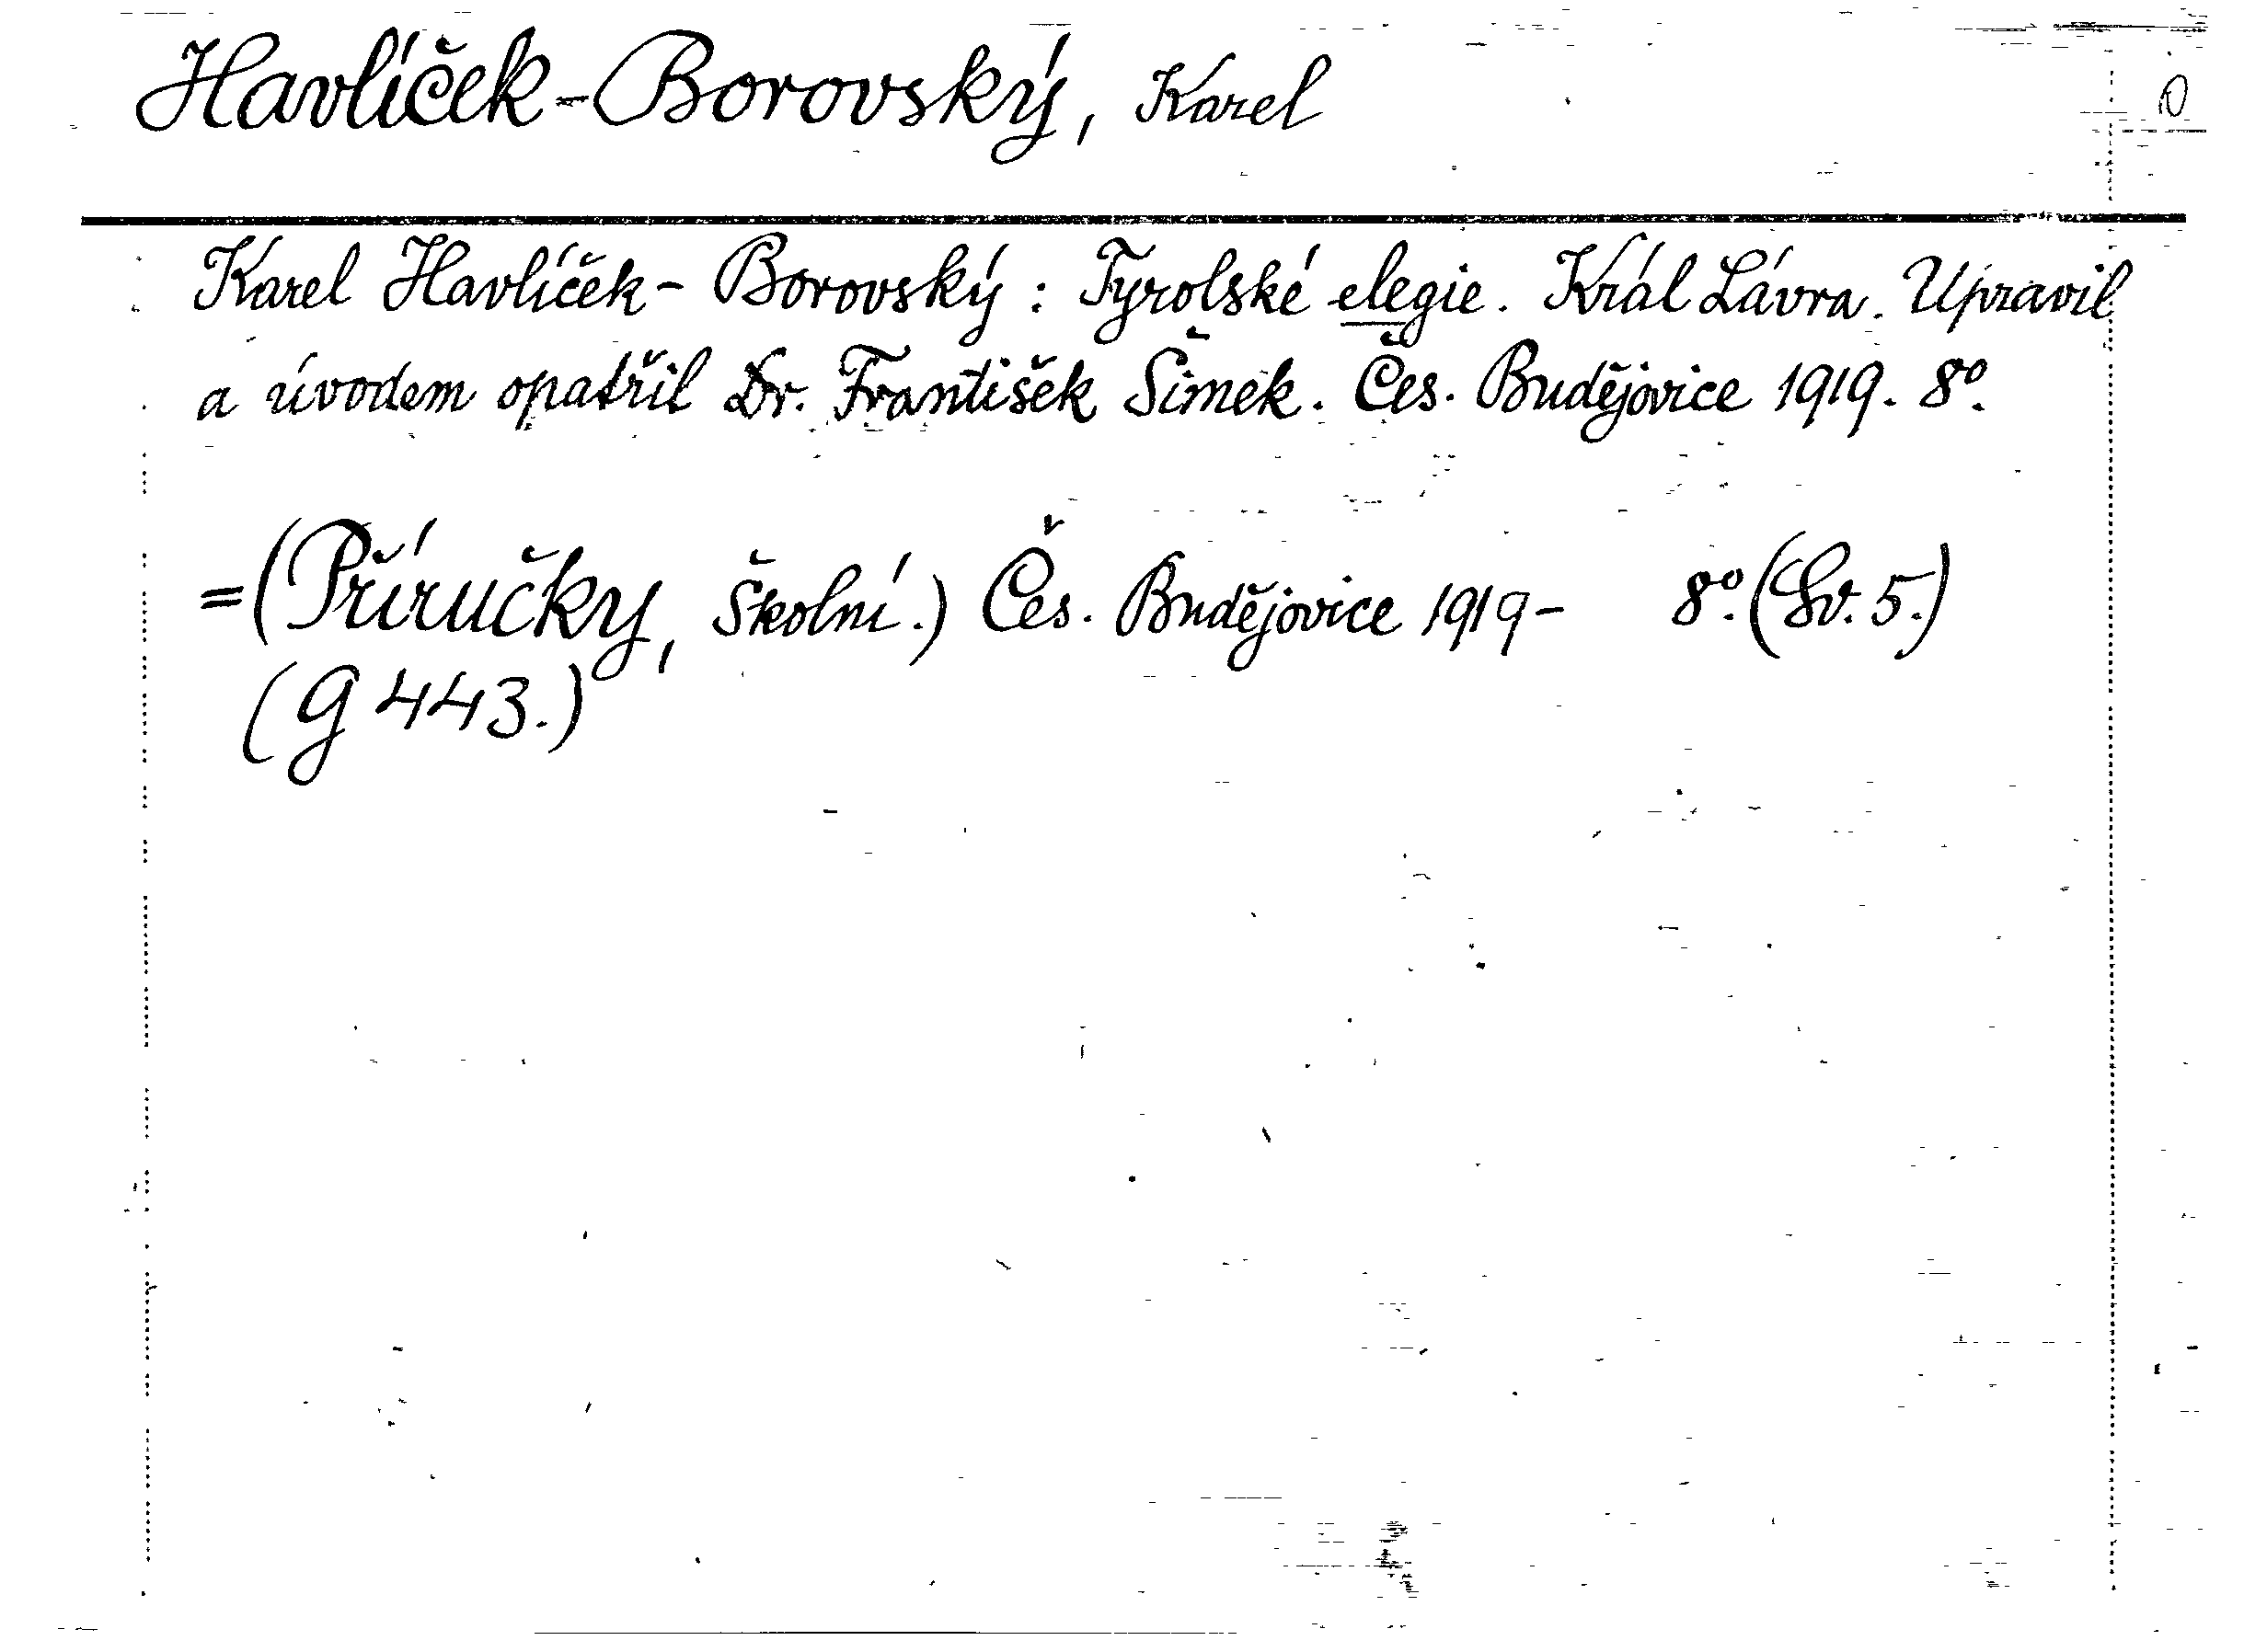 Havlíček-Borovský, Karel
Karel Havlíček-Borovský: Tyrolské elegie. Král Lávra. Upravil
a úvodem opatřil Dr. František Šimek. Čes. Budějovice 1919. 8º.
=(Příručky, školní.) Čes. Budějovice 1919- 8º. (Sv. 5.)
(G 443.)